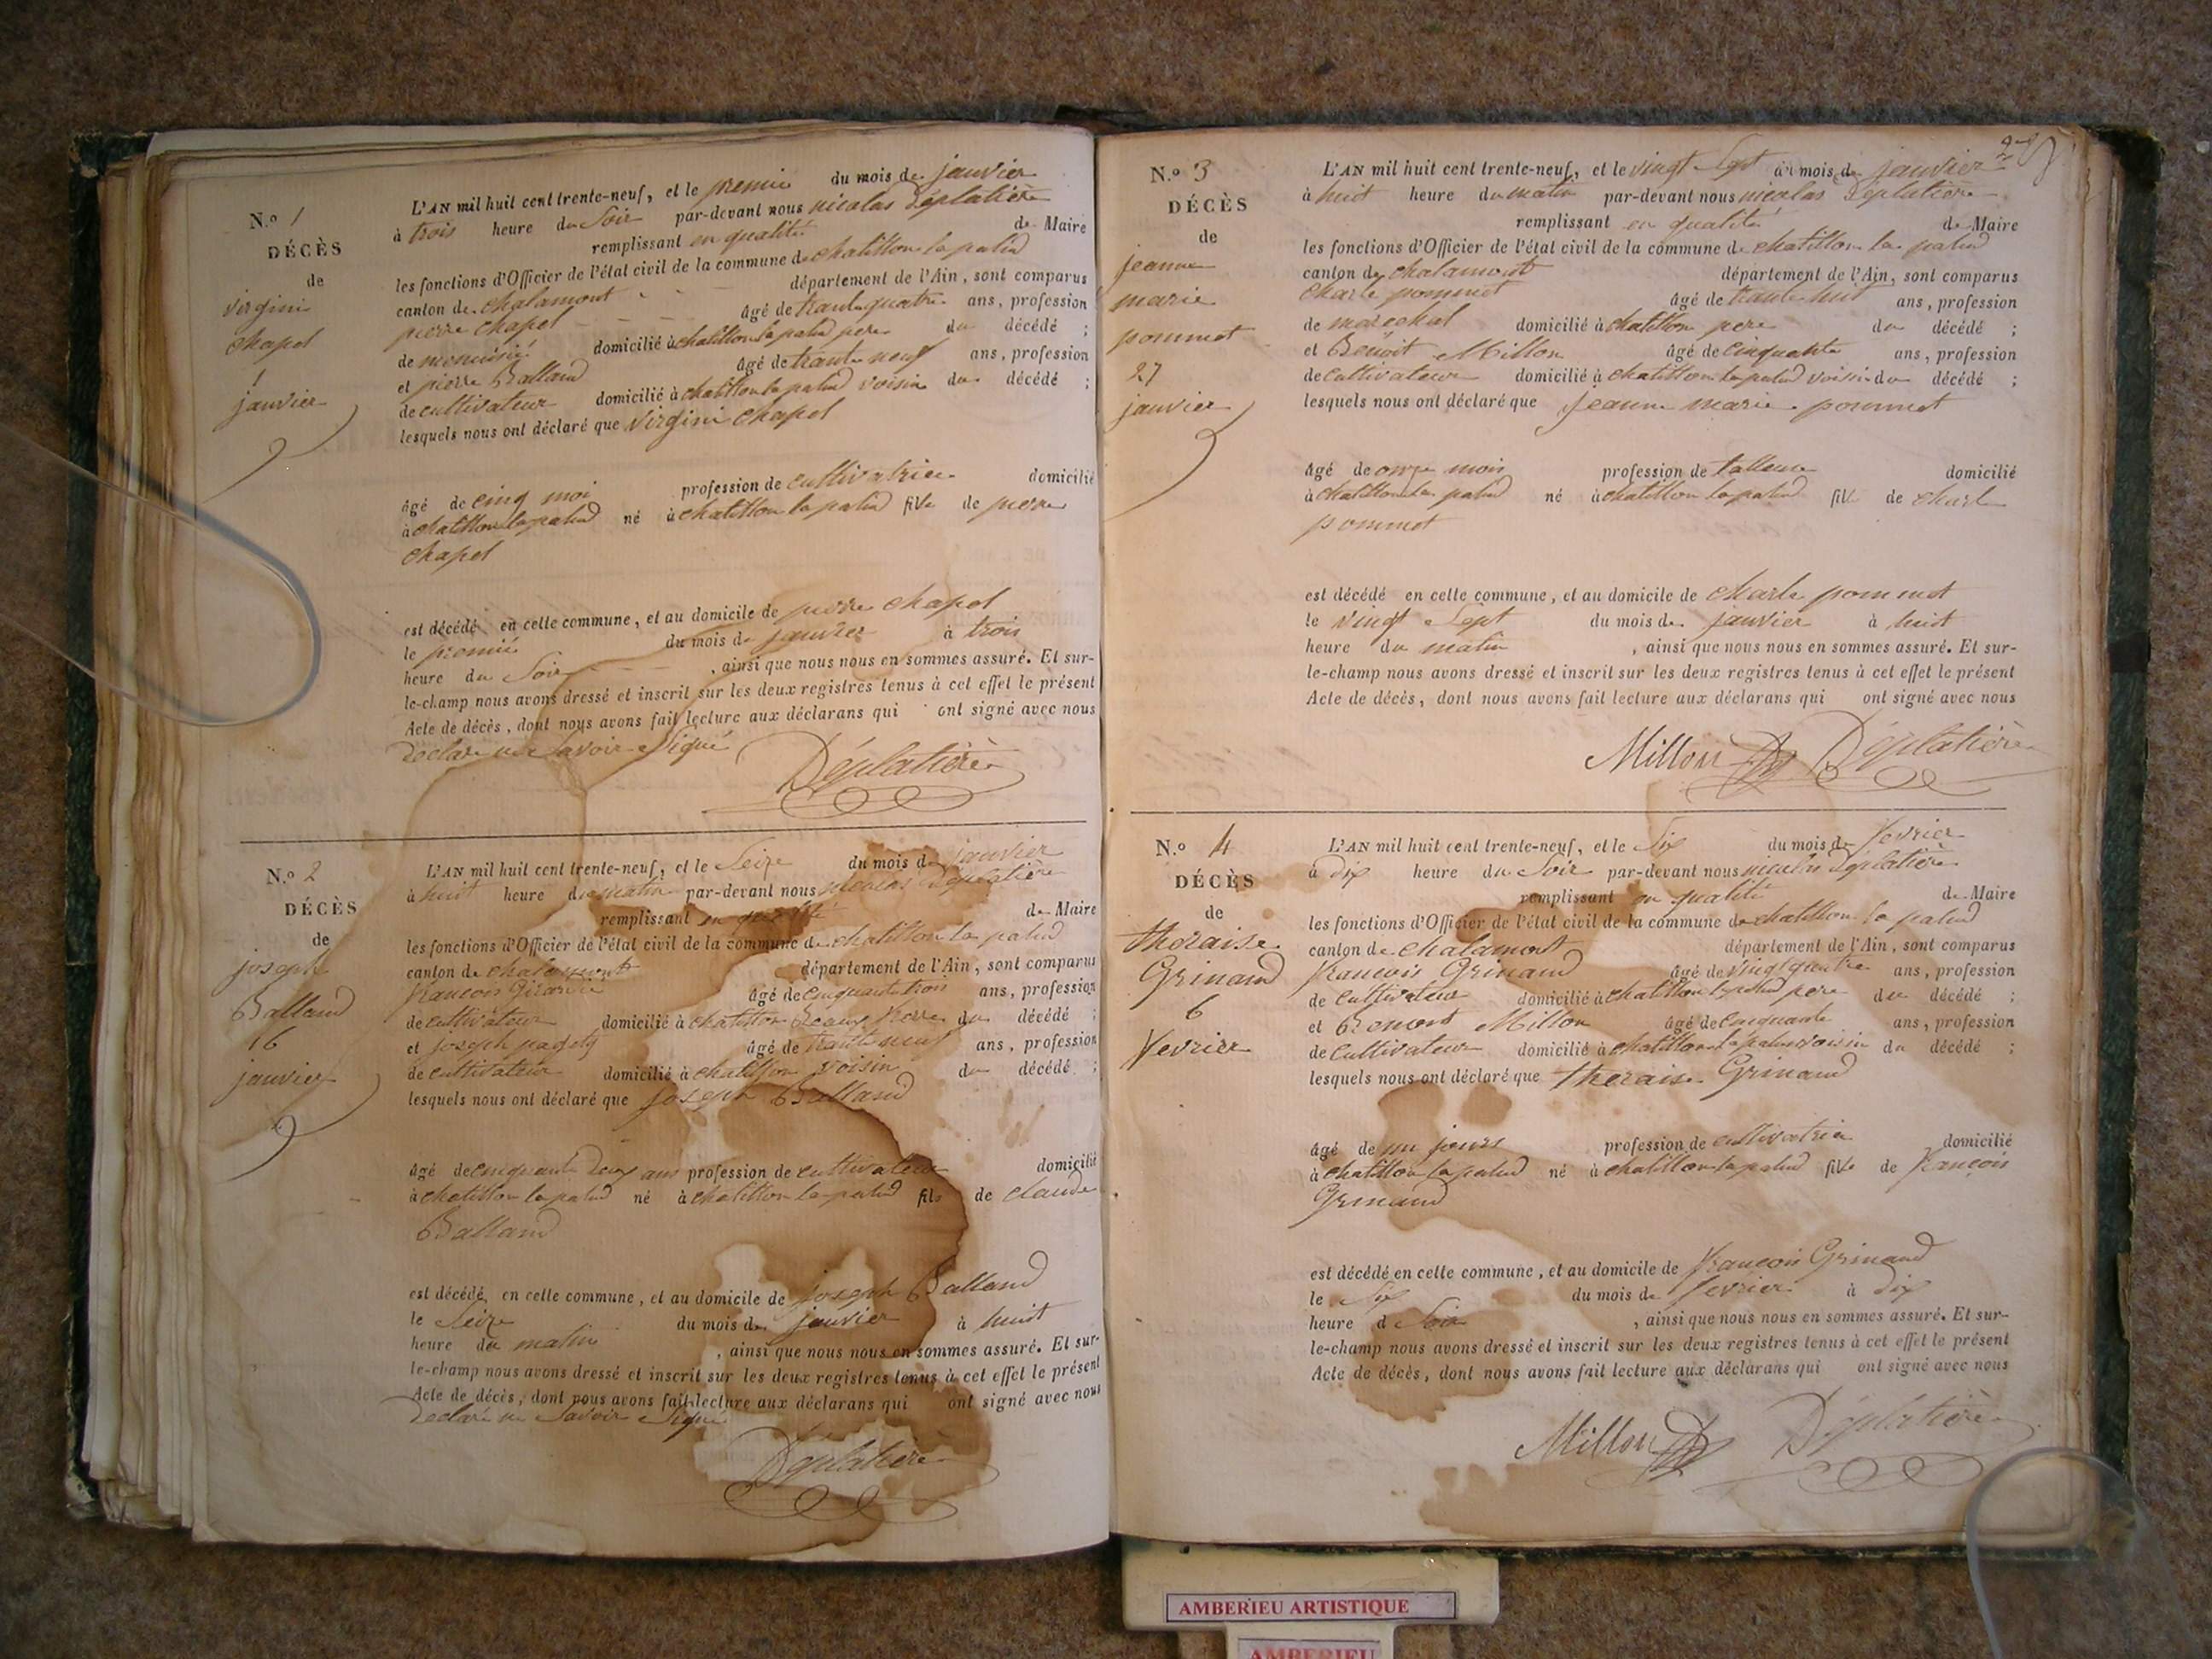 N.º 1
DÉCÈS
de
virgini
chapel
1
janvier
L'AN mil huit cent trente-neuf, et le premie du mois de janvier
à trois heure du Soir par-devant nous nicolas Déplatière
remplissant en qualité de Maire
les fonctions d'Officier de l'état civil de la commune de chatillon la palud
canton de chalamont département de l'Ain, sont comparus
pierre chapel âgé de trante quatre ans, profession
de menuisié domicilié à chatillon la palud pere du décédé ;
et pierre Balland âgé de trante neuf ans, profession
de cultivateur domicilié à chatillon la palud voisin du décédé ;
lesquels nous ont déclaré que virgini chapel
âgé de cinq moi profession de cultivatrice domicilié
à chatillon la palud né à chatillon la palud fille de pierre
chapel
est décédé en cette commune, et au domicile de pierre chapel
le premié du mois de janvier à trois
heure du Soir , ainsi que nous nous en sommes assuré. Et sur-
le-champ nous avons dressé et inscrit sur les deux registres tenus à cet effet le présent
Acte de décès, dont nous avons fait lecture aux déclarans qui ont signé avec nous
Declare ne Savoir Signé
Déplatière
N.º 2
DÉCÈS
de
joseph
Balland
16
janvier
L'AN mil huit cent trente-neuf, et le Seize du mois de janvier
à huit heure du matin par-devant nous nicolas Déplatière
remplissant en qualité de Maire
les fonctions d'Officier de l'état civil de la commune de chatillon la palud
canton de chalamont département de l'Ain, sont comparus
francois âgé de cinquante trois ans, profession
de cultivateur domicilié à chatillon Beaux frere du décédé ;
et joseph âgé de trante neuf ans, profession
de cultivateur domicilié à chatillon voisin du décédé ;
lesquels nous ont déclaré que joseph Balland
âgé de cinquante deux ans profession de cultivateur domicilié
à chatillon la palud né à chatillon la palud fils de claude
Balland
est décédé en cette commune, et au domicile de joseph Balland
le Seize du mois de janvier à huit
heure du matin , ainsi que nous nous en sommes assuré. Et sur-
le-champ nous avons dressé et inscrit sur les deux registres tenus à cet effet le présent
Acte de décès, dont nous avons fait lecture aux déclarans qui ont signé avec nous
Declaré ne Savoir Signé
Déplatière
N.º 3
DÉCÈS
de
jeanne
marie
pommet
27
janvier
L'AN mil huit cent trente-neuf, et le vingt Sept du mois de janvier
à huit heure du matin par-devant nous nicolas Déplatière
remplissant en qualité de Maire
les fonctions d'Officier de l'état civil de la commune de chatillon la palud
canton de chalamont département de l'Ain, sont comparus
charle pommet âgé de trante huit ans, profession
de marechal domicilié à chatillon pere du décédé ;
et Benoit Millon âgé de cinquante ans, profession
de cultivateur domicilié à chatillon la palud voisin du décédé ;
lesquels nous ont déclaré que jeanne marie pommet
âgé de onze mois profession de talleuse domicilié
à chatillon la palud né à chatillon la palud fille de charle
pommet
est décédé en cette commune, et au domicile de charle pommet
le vingt Sept du mois de janvier à huit
heure du matin , ainsi que nous nous en sommes assuré. Et sur-
le-champ nous avons dressé et inscrit sur les deux registres tenus à cet effet le présent
Acte de décès, dont nous avons fait lecture aux déclarans qui ont signé avec nous
Millon Déplatière
N.º 4
DÉCÈS
de
theraise
Grinand
6
fevrier
L'AN mil huit cent trente-neuf, et le Six du mois de fevrier
à dix heure du Soir par-devant nous nicolas Déplatière
remplissant en qualité de Maire
les fonctions d'Officier de l'état civil de la commune de chatillon la palud
canton de chalamont département de l'Ain, sont comparus
francois Grinand âgé de vingt quatre ans, profession
de cultivateur domicilié à chatillon la palud pere du décédé ;
et Benoit Millon âgé de cinquante ans, profession
de cultivateur domicilié à chatillon la palud voisin du décédé ;
lesquels nous ont déclaré que theraise Grinand
âgé de un jours profession de cultivatrice domicilié
à chatillon la palud né à chatillon la palud fille de francois
Grinand
est décédé en cette commune, et au domicile de francois Grinand
le Six du mois de fevrier à dix
heure d Soir , ainsi que nous nous en sommes assuré. Et sur-
le-champ nous avons dressé et inscrit sur les deux registres tenus à cet effet le présent
Acte de décès, dont nous avons fait lecture aux déclarans qui ont signé avec nous
Millon Déplatière
AMBERIEU ARTISTIQUE
AMBERIEU